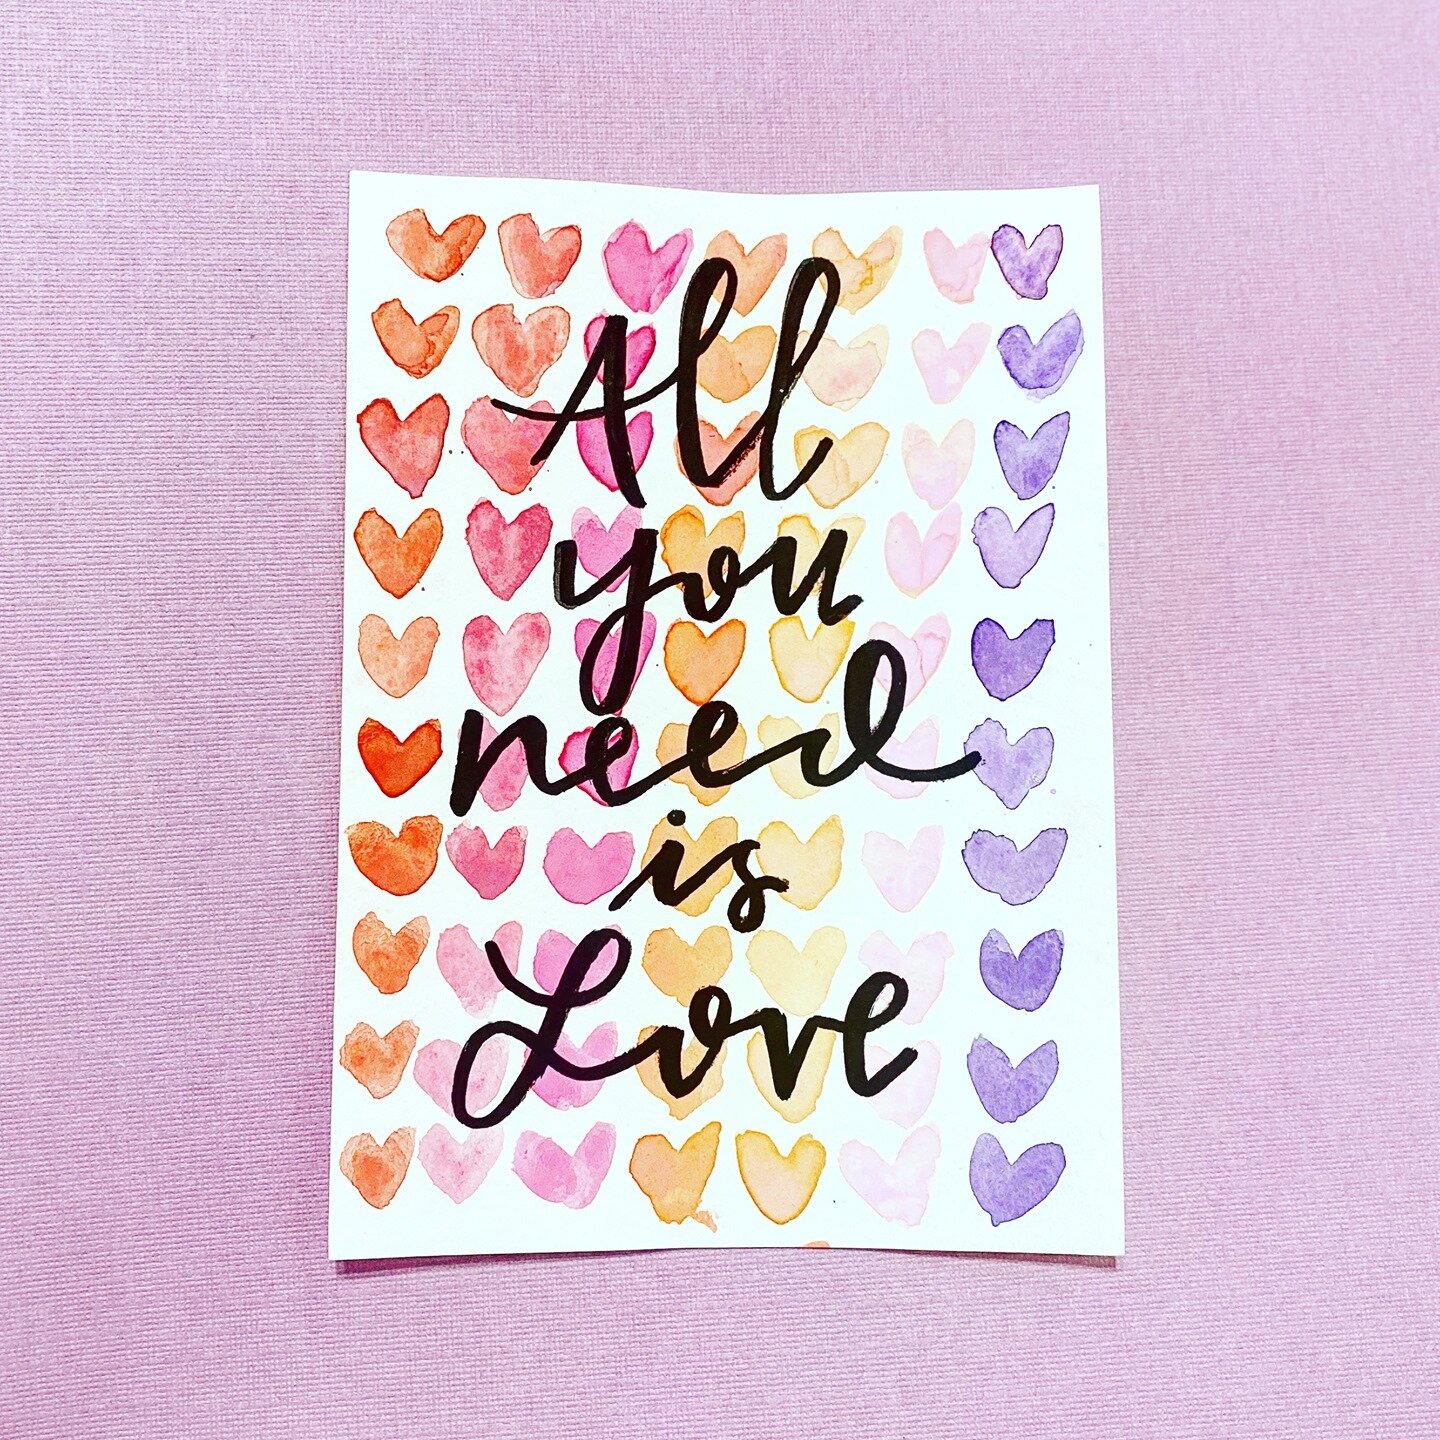 All
you
need
is
Love